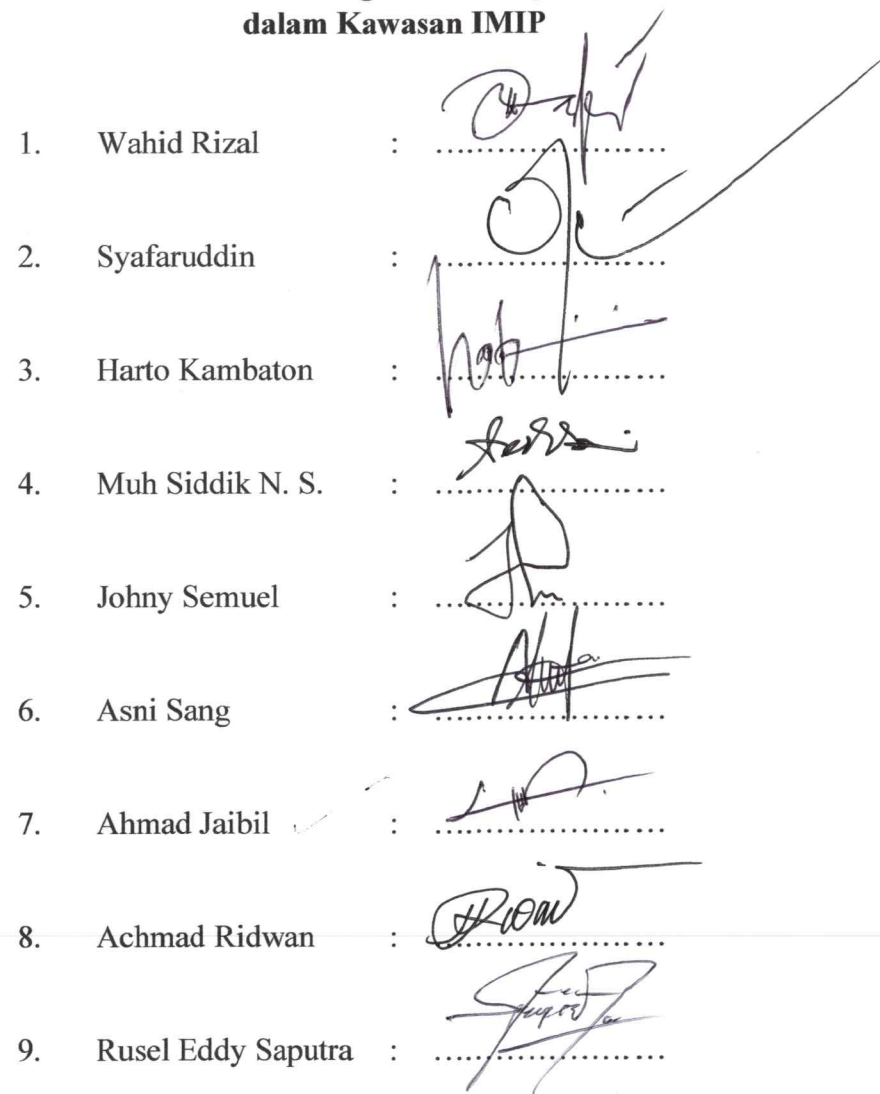 dalam Kawasan IMIP
1. Wahid Rizal : ..............................
2. Syafaruddin : ..............................
3. Harto Kambaton : ..............................
4. Muh Siddik N. S. : ..............................
5. Johny Semuel : ..............................
6. Asni Sang : ..............................
7. Ahmad Jaibil : ..............................
8. Achmad Ridwan : ..............................
9. Rusel Eddy Saputra : ..............................